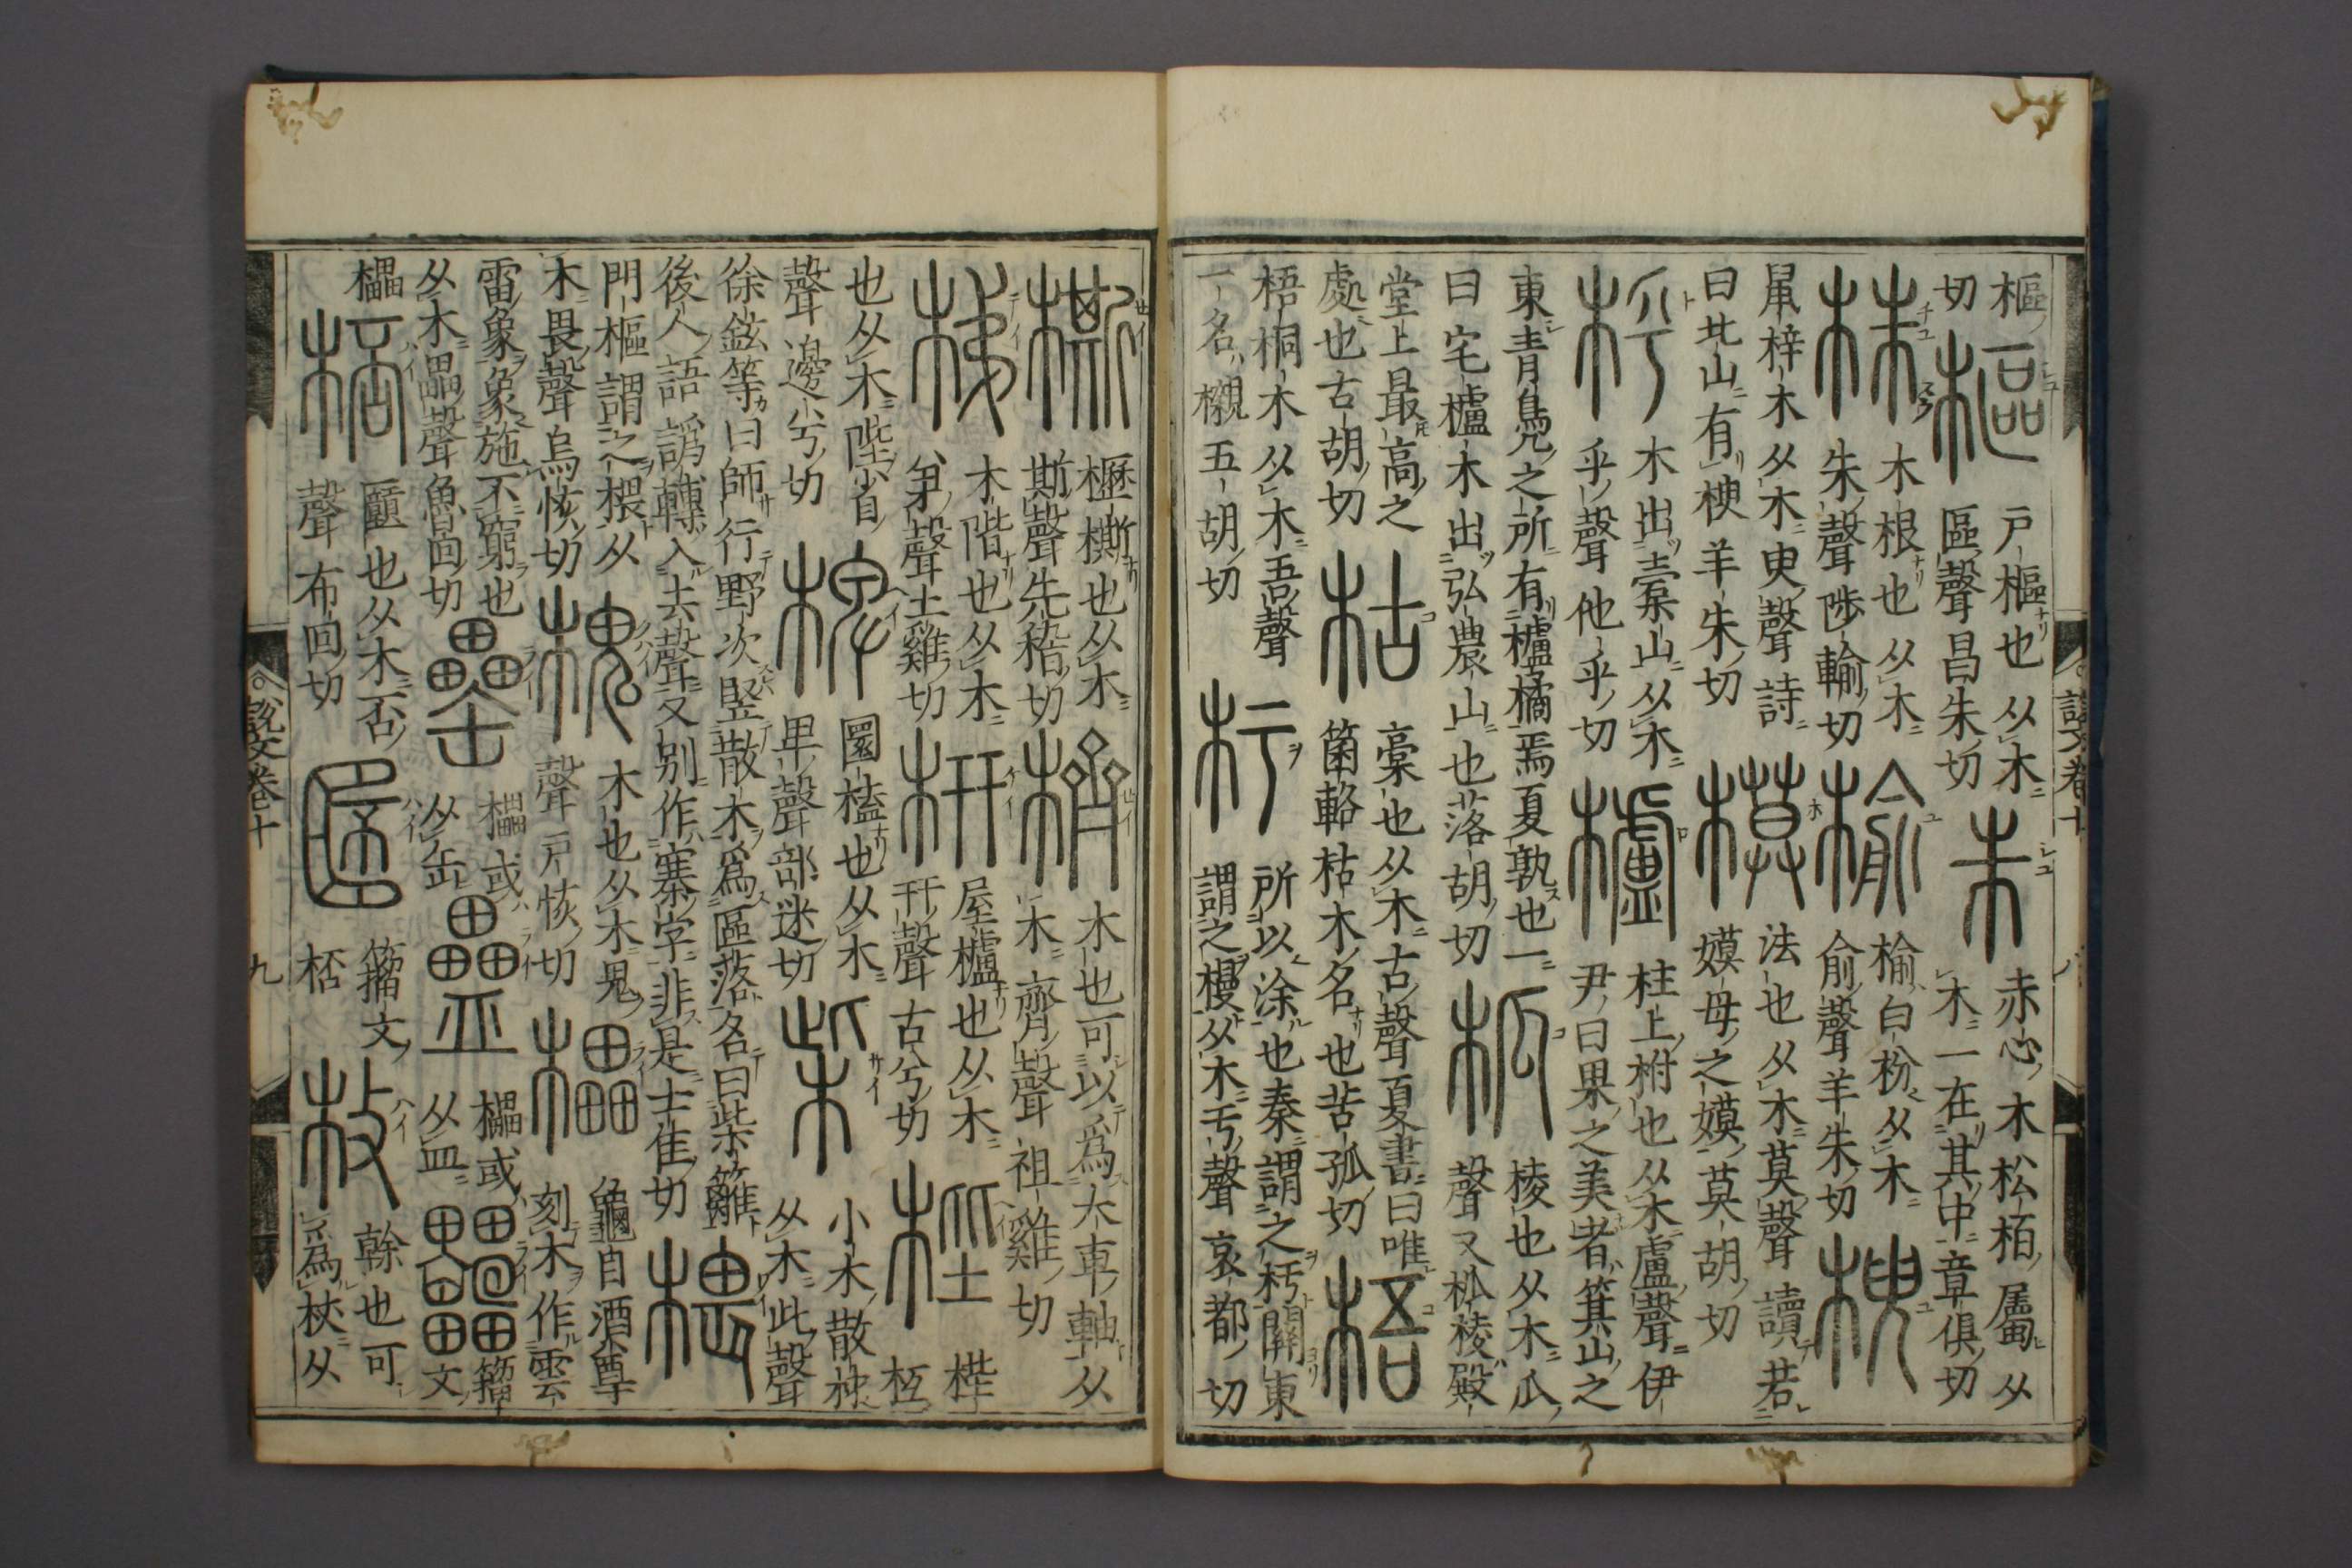 樞
切
樞
戸樞也从木
區聲昌朱切
朱
赤心木松栢屬从
木一在其中章俱切
株
木根也从木
朱聲陟輸切
榆
榆白枌从木
俞聲羊朱切
楰
鼠梓木从木臾聲詩
曰北山有楰羊朱切
模
法也从木莫聲讀若
嫫母之嫫莫胡切
木出橐山从木
乎聲他乎切
櫨
柱上柎也从木盧聲伊
尹曰果之美者箕山之
東青鳧之所有櫨橘焉夏孰也一
曰宅櫨木出弘農山也落胡切
柧
棱也从木瓜
聲又柧棱殿
堂上最高之
處也古胡切
枯
槀也从木古聲夏書曰唯
箘輅枯木名也苦孤切
梧
梧桐木从木吾聲
一名櫬五胡切
杇
所以涂也秦謂之杇關東
謂之槾从木亏聲哀都切
㯕
櫪㯕也从木
斯聲先稽切
櫅
木也可以爲大車軸从
木齊聲祖雞切
梯
木階也从木
弟聲土雞切
枅
屋櫨也从木
幵聲古兮切
梐
梐
枑
也从木陛省
聲邊兮切
椑
圜榼也从木
卑聲部迷切
柴
小木散材
从木此聲
徐鉉等曰師行野次豎散木爲區落名曰柴籬
後人語譌轉入去聲又别作寨字非是士佳切
椳
門樞謂之椳从
木畏聲烏恢切
槐
木也从木鬼
聲戸恢切
櫑
龜目酒尊
刻木作雲
雷象象施不窮也
从木畾聲魯回切
罍
櫑或
从缶
櫑或
从皿
籒
文
櫑
桮
也从木否
聲布回切
籒文
桮
枚
榦也可
爲杖从
說文卷十
說文卷十 九